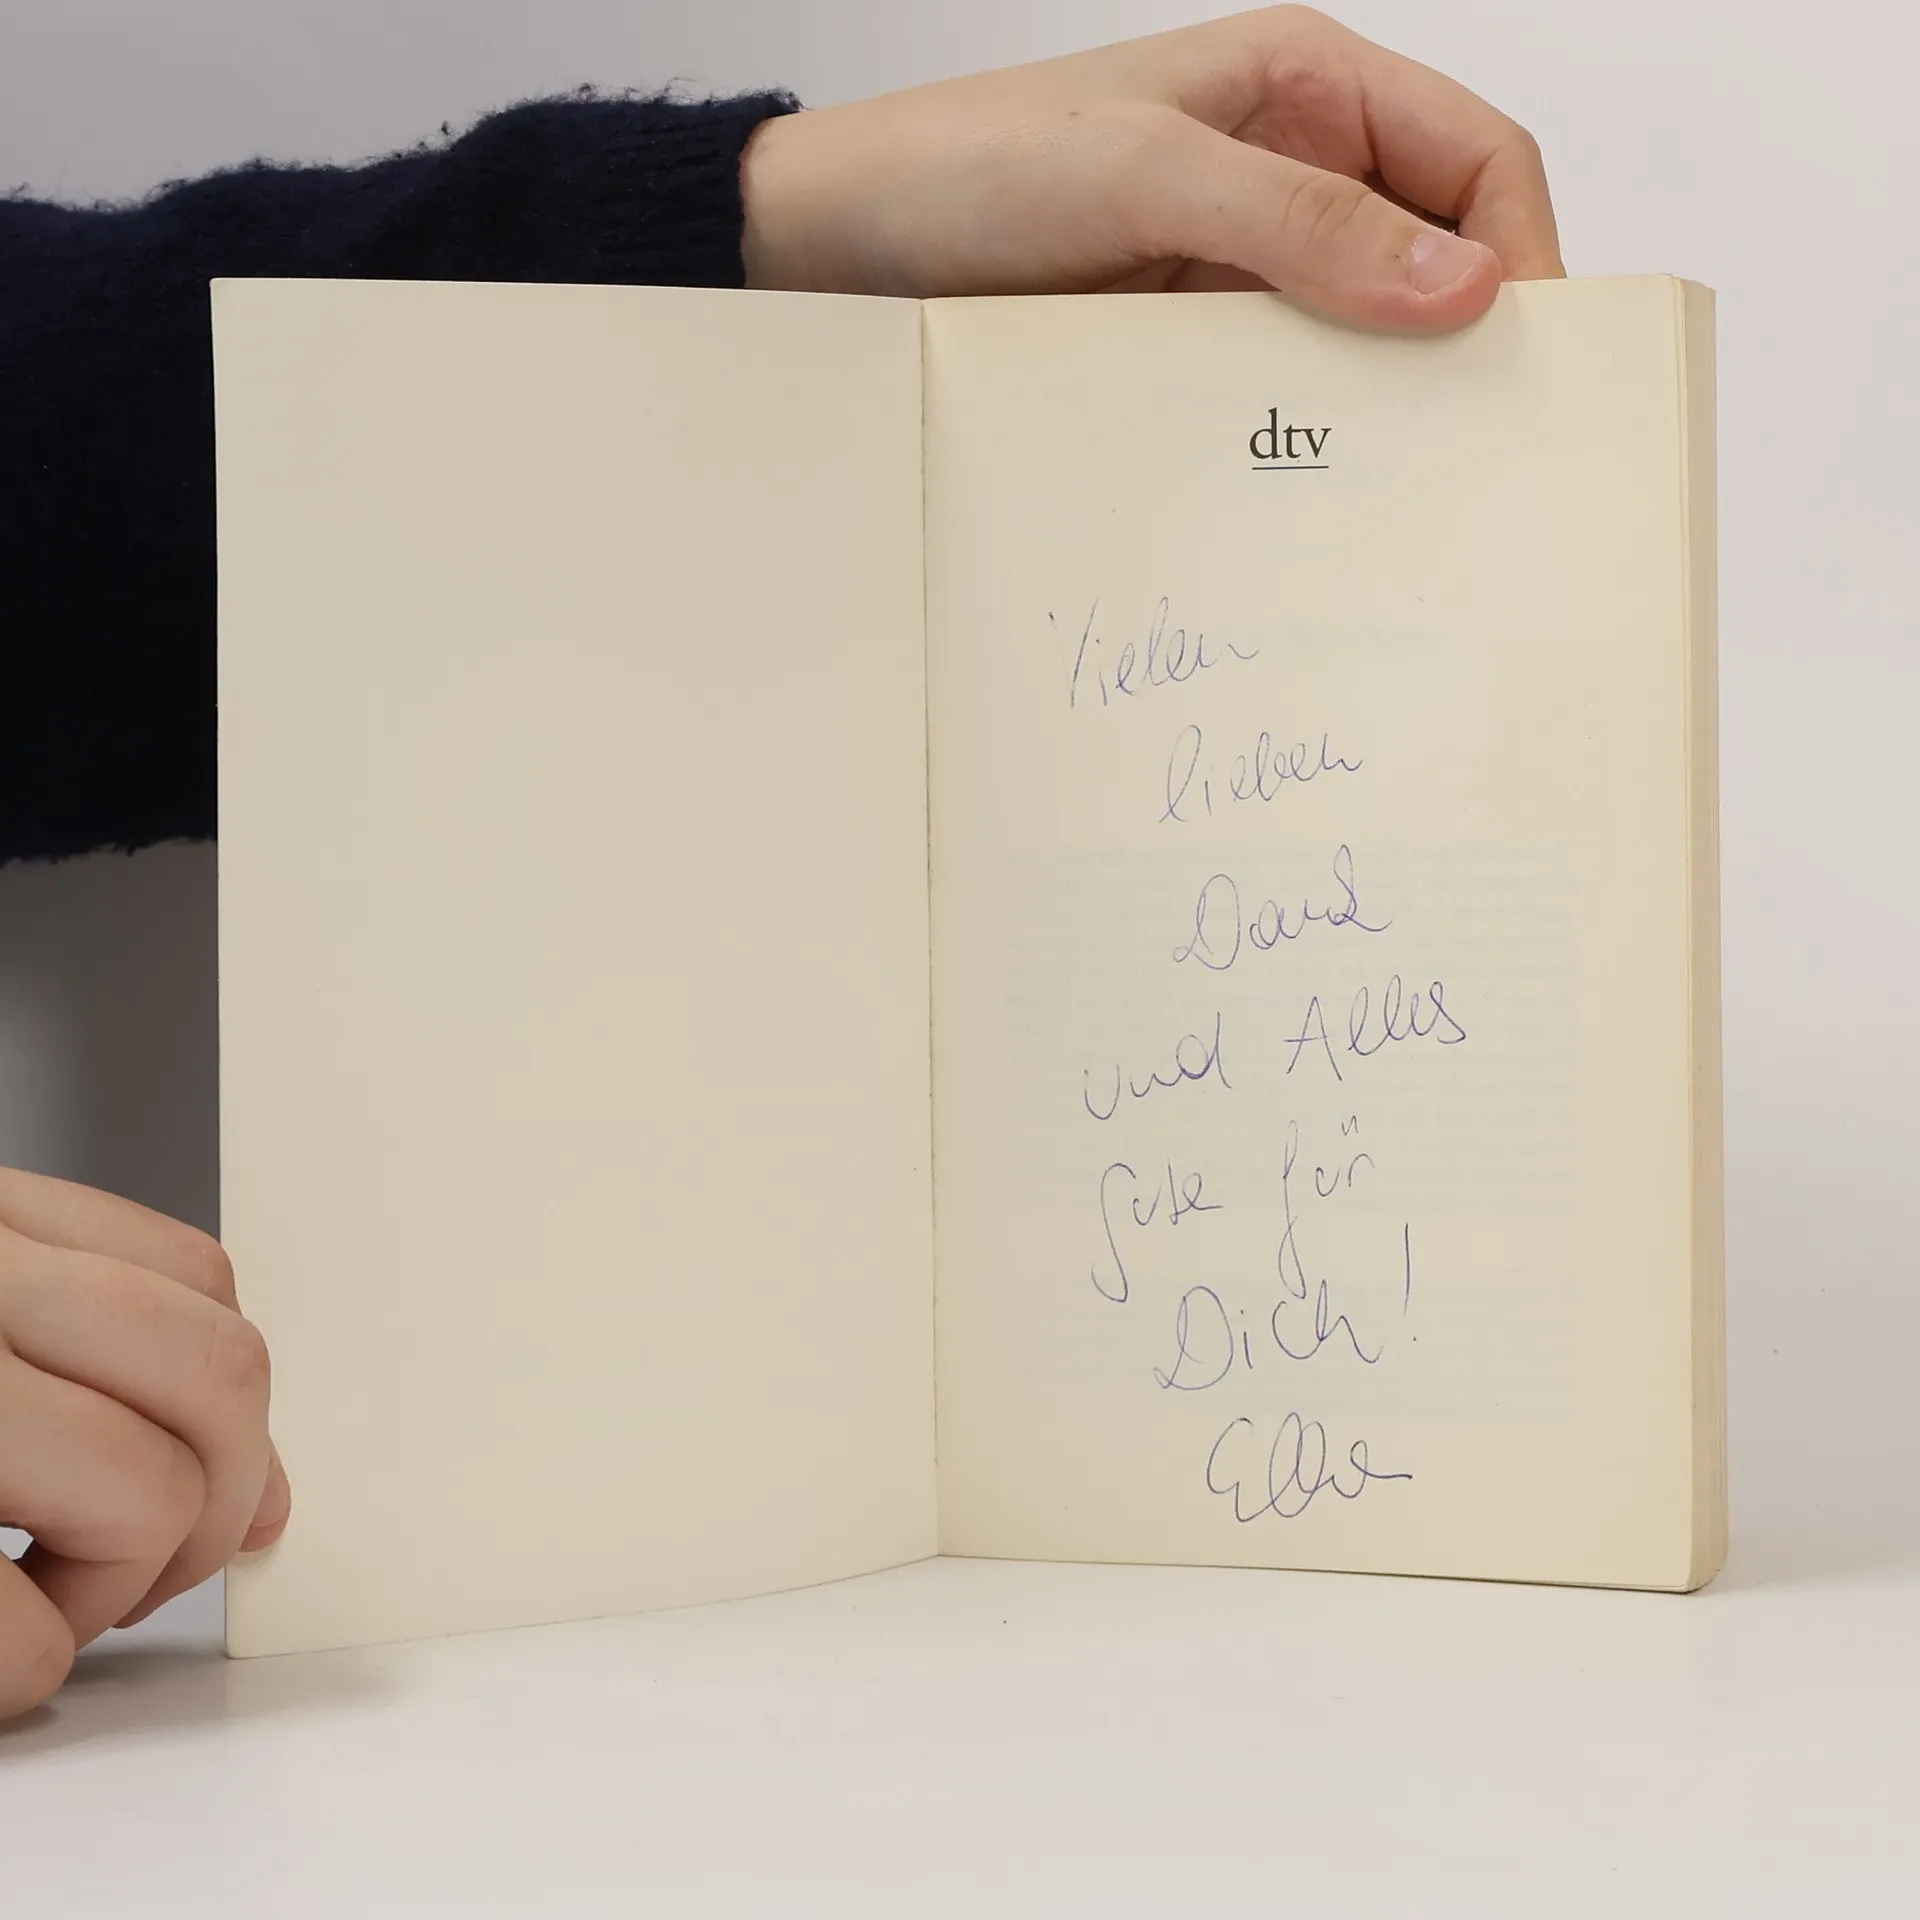 dtv
Vielen
lieben
Dank
und Alles
Gute für
Dich!
Elke